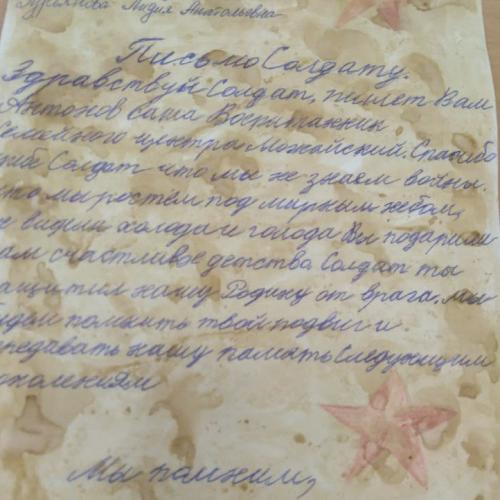 Лидия Анатольевна
Письмо Солдату.
Здравствуй Солдат, пишет Вам
Антонов Саша Воспитанник
Семейного центра Можайский. Спасибо
тебе Солдат что мы не знаем войны.
что мы ростём под мирным небом,
не видели холода и голода Вы подарили
нам счастливое детство Солдат ты
защитил нашу Родину от врага, мы
будем помнить твой подвиг и
передавать нашу память Следующим
поколениям
Мы помним,